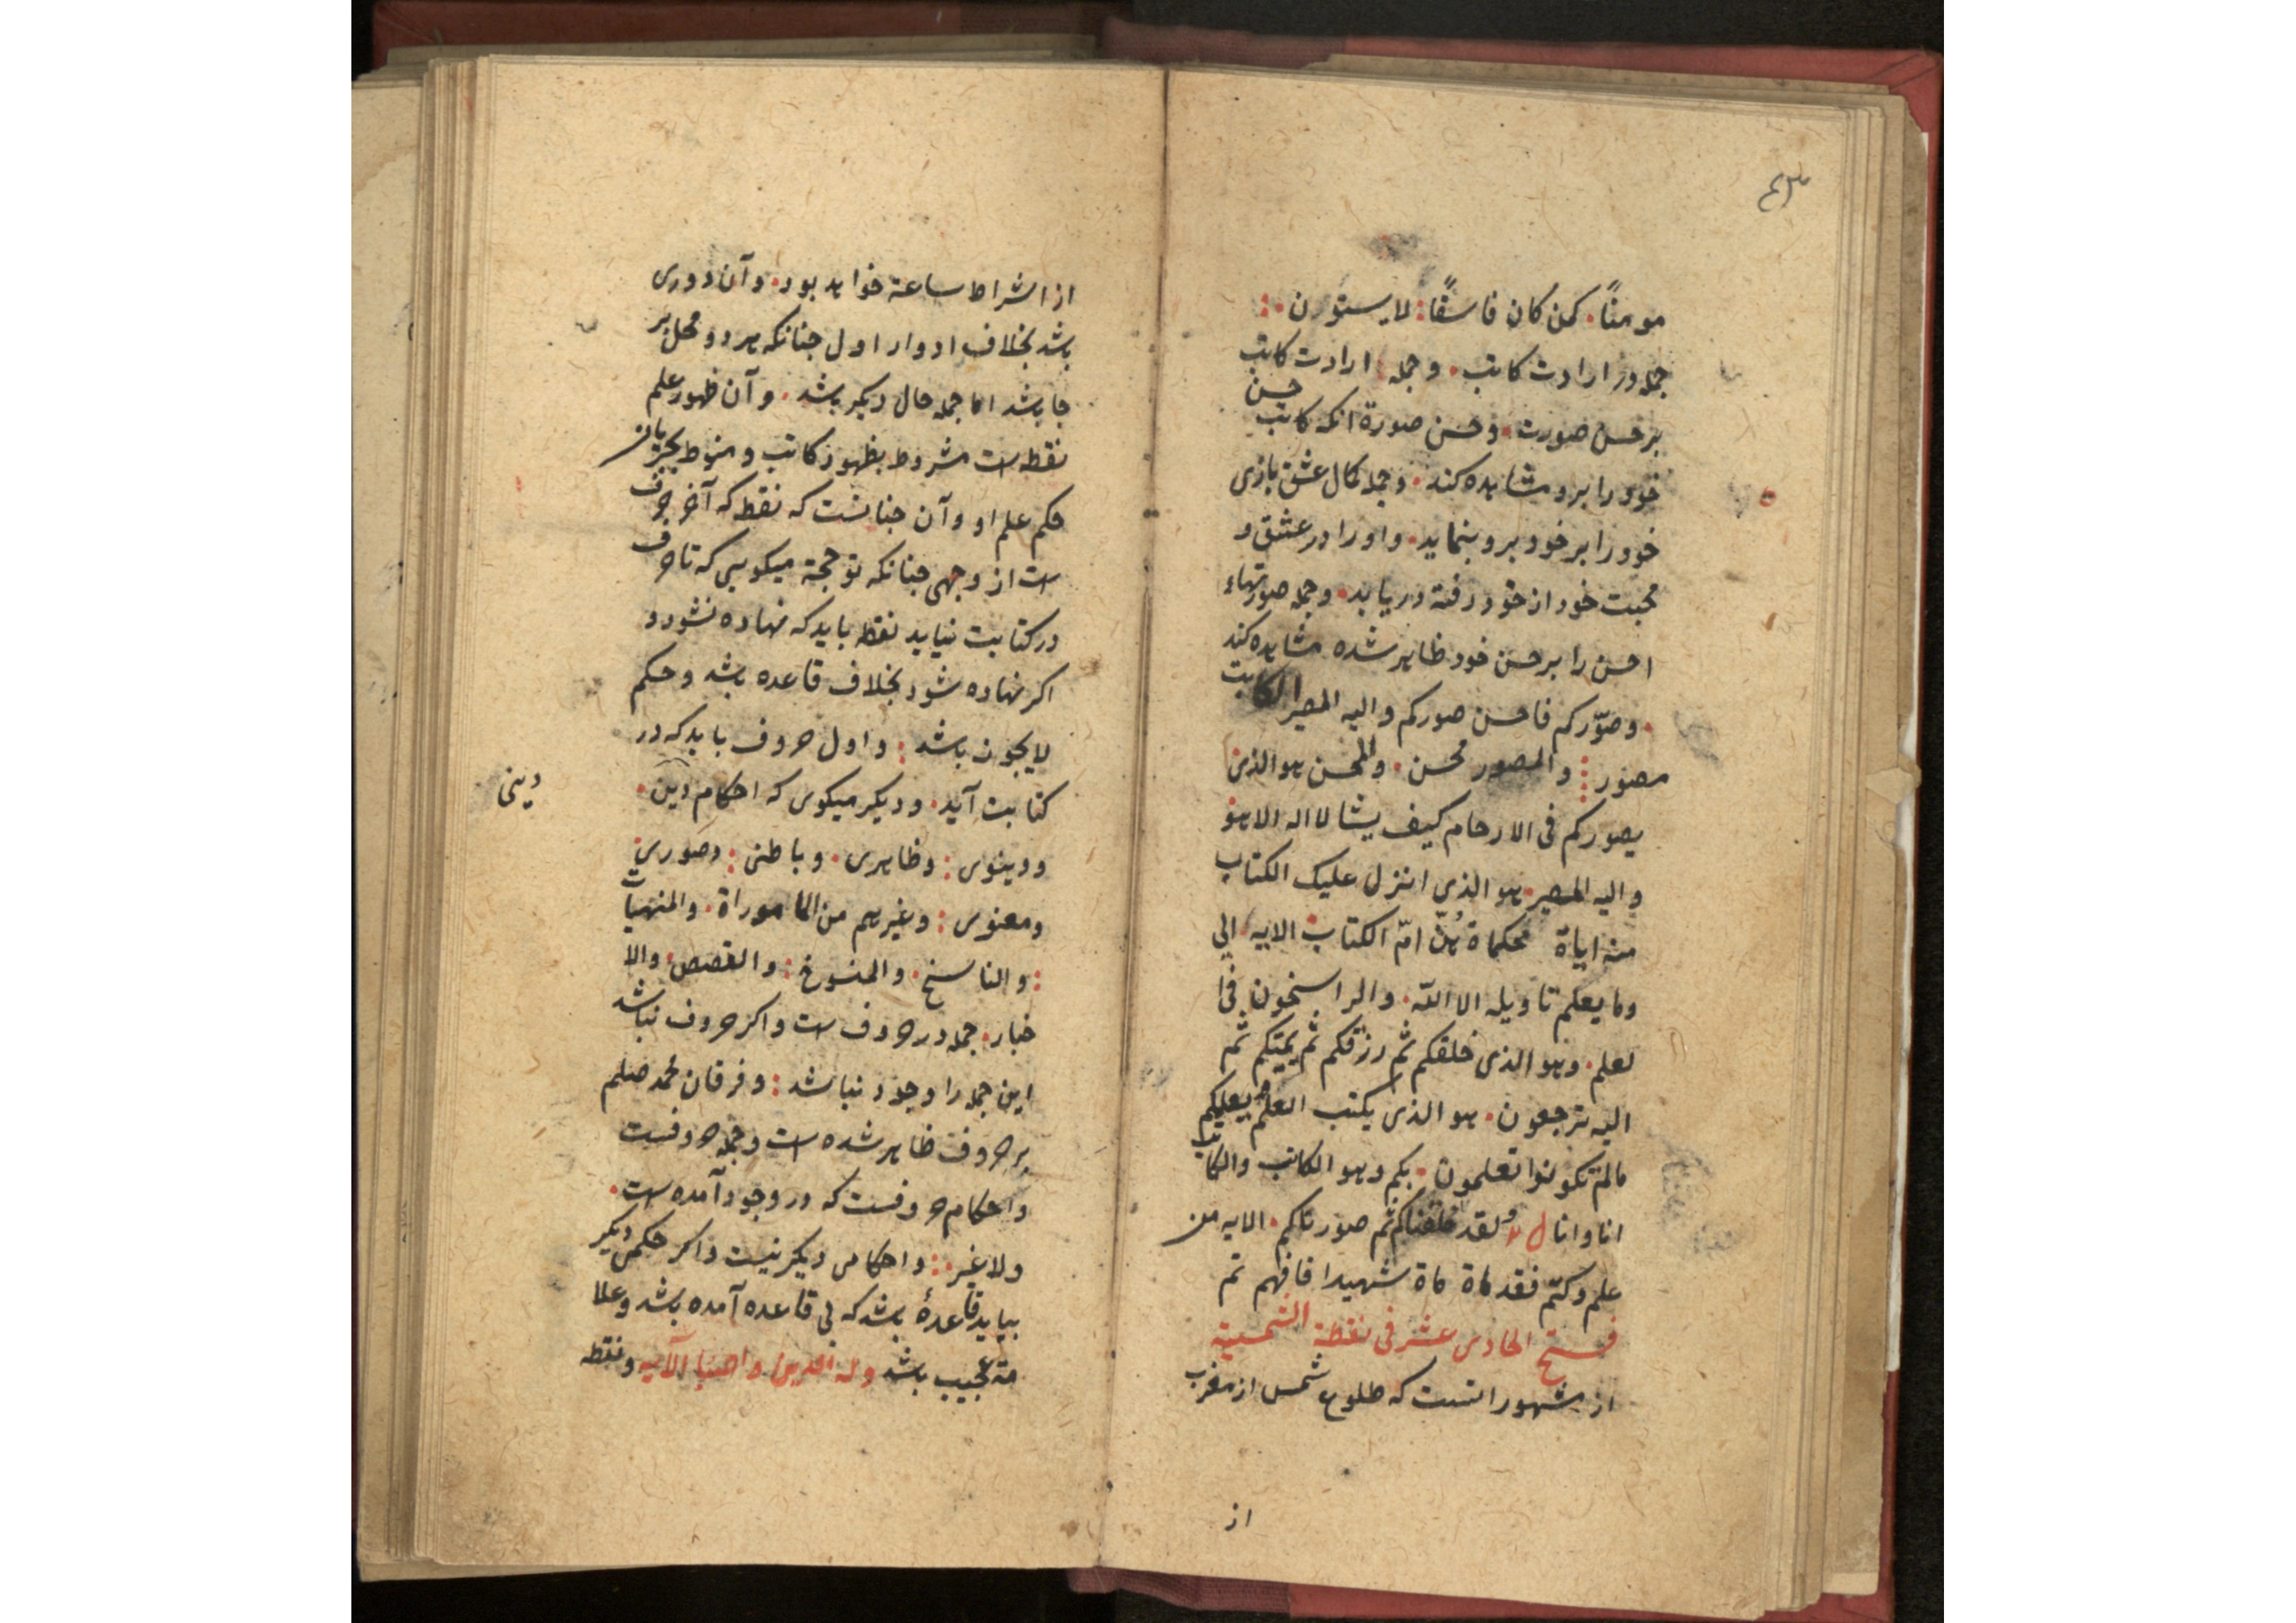 مومنًا. کمن کان فاسقًا: لا یستوون.:
جمله در ارادت کاتب. و جمله ارادت کاتب
بر حسن صورت. و حسن صورة انکه کاتب حسن
خود را برو مشاهده کند. و جمله کمال عشق بازی
خود را بر خود برو بنماید. و او را در عشق و
محبت خود از خود رفته دریابد. و جمله صورتهاء
احسن را بر حسن خود ظاهر شده مشاهده کند
. و صوّرکم فاحسن صورکم و الیه المصیر الکاتب
مصور: و المصور محسن. و المحسن هو الذی
یصورکم فی الارحام کیف یشا لا اله الا هو
و الیه المصیر. هو الذی انزل علیک الکتاب
منه ایاة محکماة هنّ امّ الکتاب الایه. الی
و ما یعلم تاویله الا الله. و الراسخون فی ا
لعلم. و هو الذی خلقکم ثم رزقکم ثم یمیتکم ثم
الیه ترجعون. هو الذی یکتب العلم یعلمکم
مالم تکونوا تعلمون. بکم و هو الکاتب و الکاتب
انا و انا و لقد خلقناکم ثم صورناکم. الایه من
علم و کتم فقد ماة ماة شهیدا فافهم تم
فتح الحادی عشر فی نقطة الشمسیة
از مشهور انست که طلوع شمس از مغرب
از
از اشراط ساعة خواهد بود. و آن دوری
باشد بخلاف ادوار اول جنانکه هر دو محل بر
جا باشد اما جمله حال دیکر باشد. و آن ظهور علم
نقطه است مشروط بظهور کاتب و منوط بجریان
حکم علم او و آن جنانست که نقطه که آخر حرف
است از وجهی جنانکه تو حجة میکویی که تا حرف
در کتابت نیاید نقطه باید که نهاده نشود و
اکر نهاده شود بخلاف قاعده باشد و حکم
لا یجوز باشد: و اول حروف باید که در
کتابت آید. و دیکر میکوی که احکام دین.
دینی
و دینوی: و ظاهری. و باطنی: و صوری
و معنوی: و غیرهم من الماموراة. و المنهیات
: و الناسخ. و المنسوخ: و القصص. و الا
خبار. جمله در حروف است و اکر حروف نباشد
این جمله را وجود نباشد: و فرقان محمد صلعم
بر حروف ظاهر شده است و جمله حروفست
و احکام حروفست که در وجود آمده است.
و لا غیر: و احکامی دیکر نیست و اکر حکمی دیکر
بیاید قاعدهٔ باشد که بی قاعده آمده باشد و علا
مة عجیب باشد و له الدین واصبا الآیه و نقطه